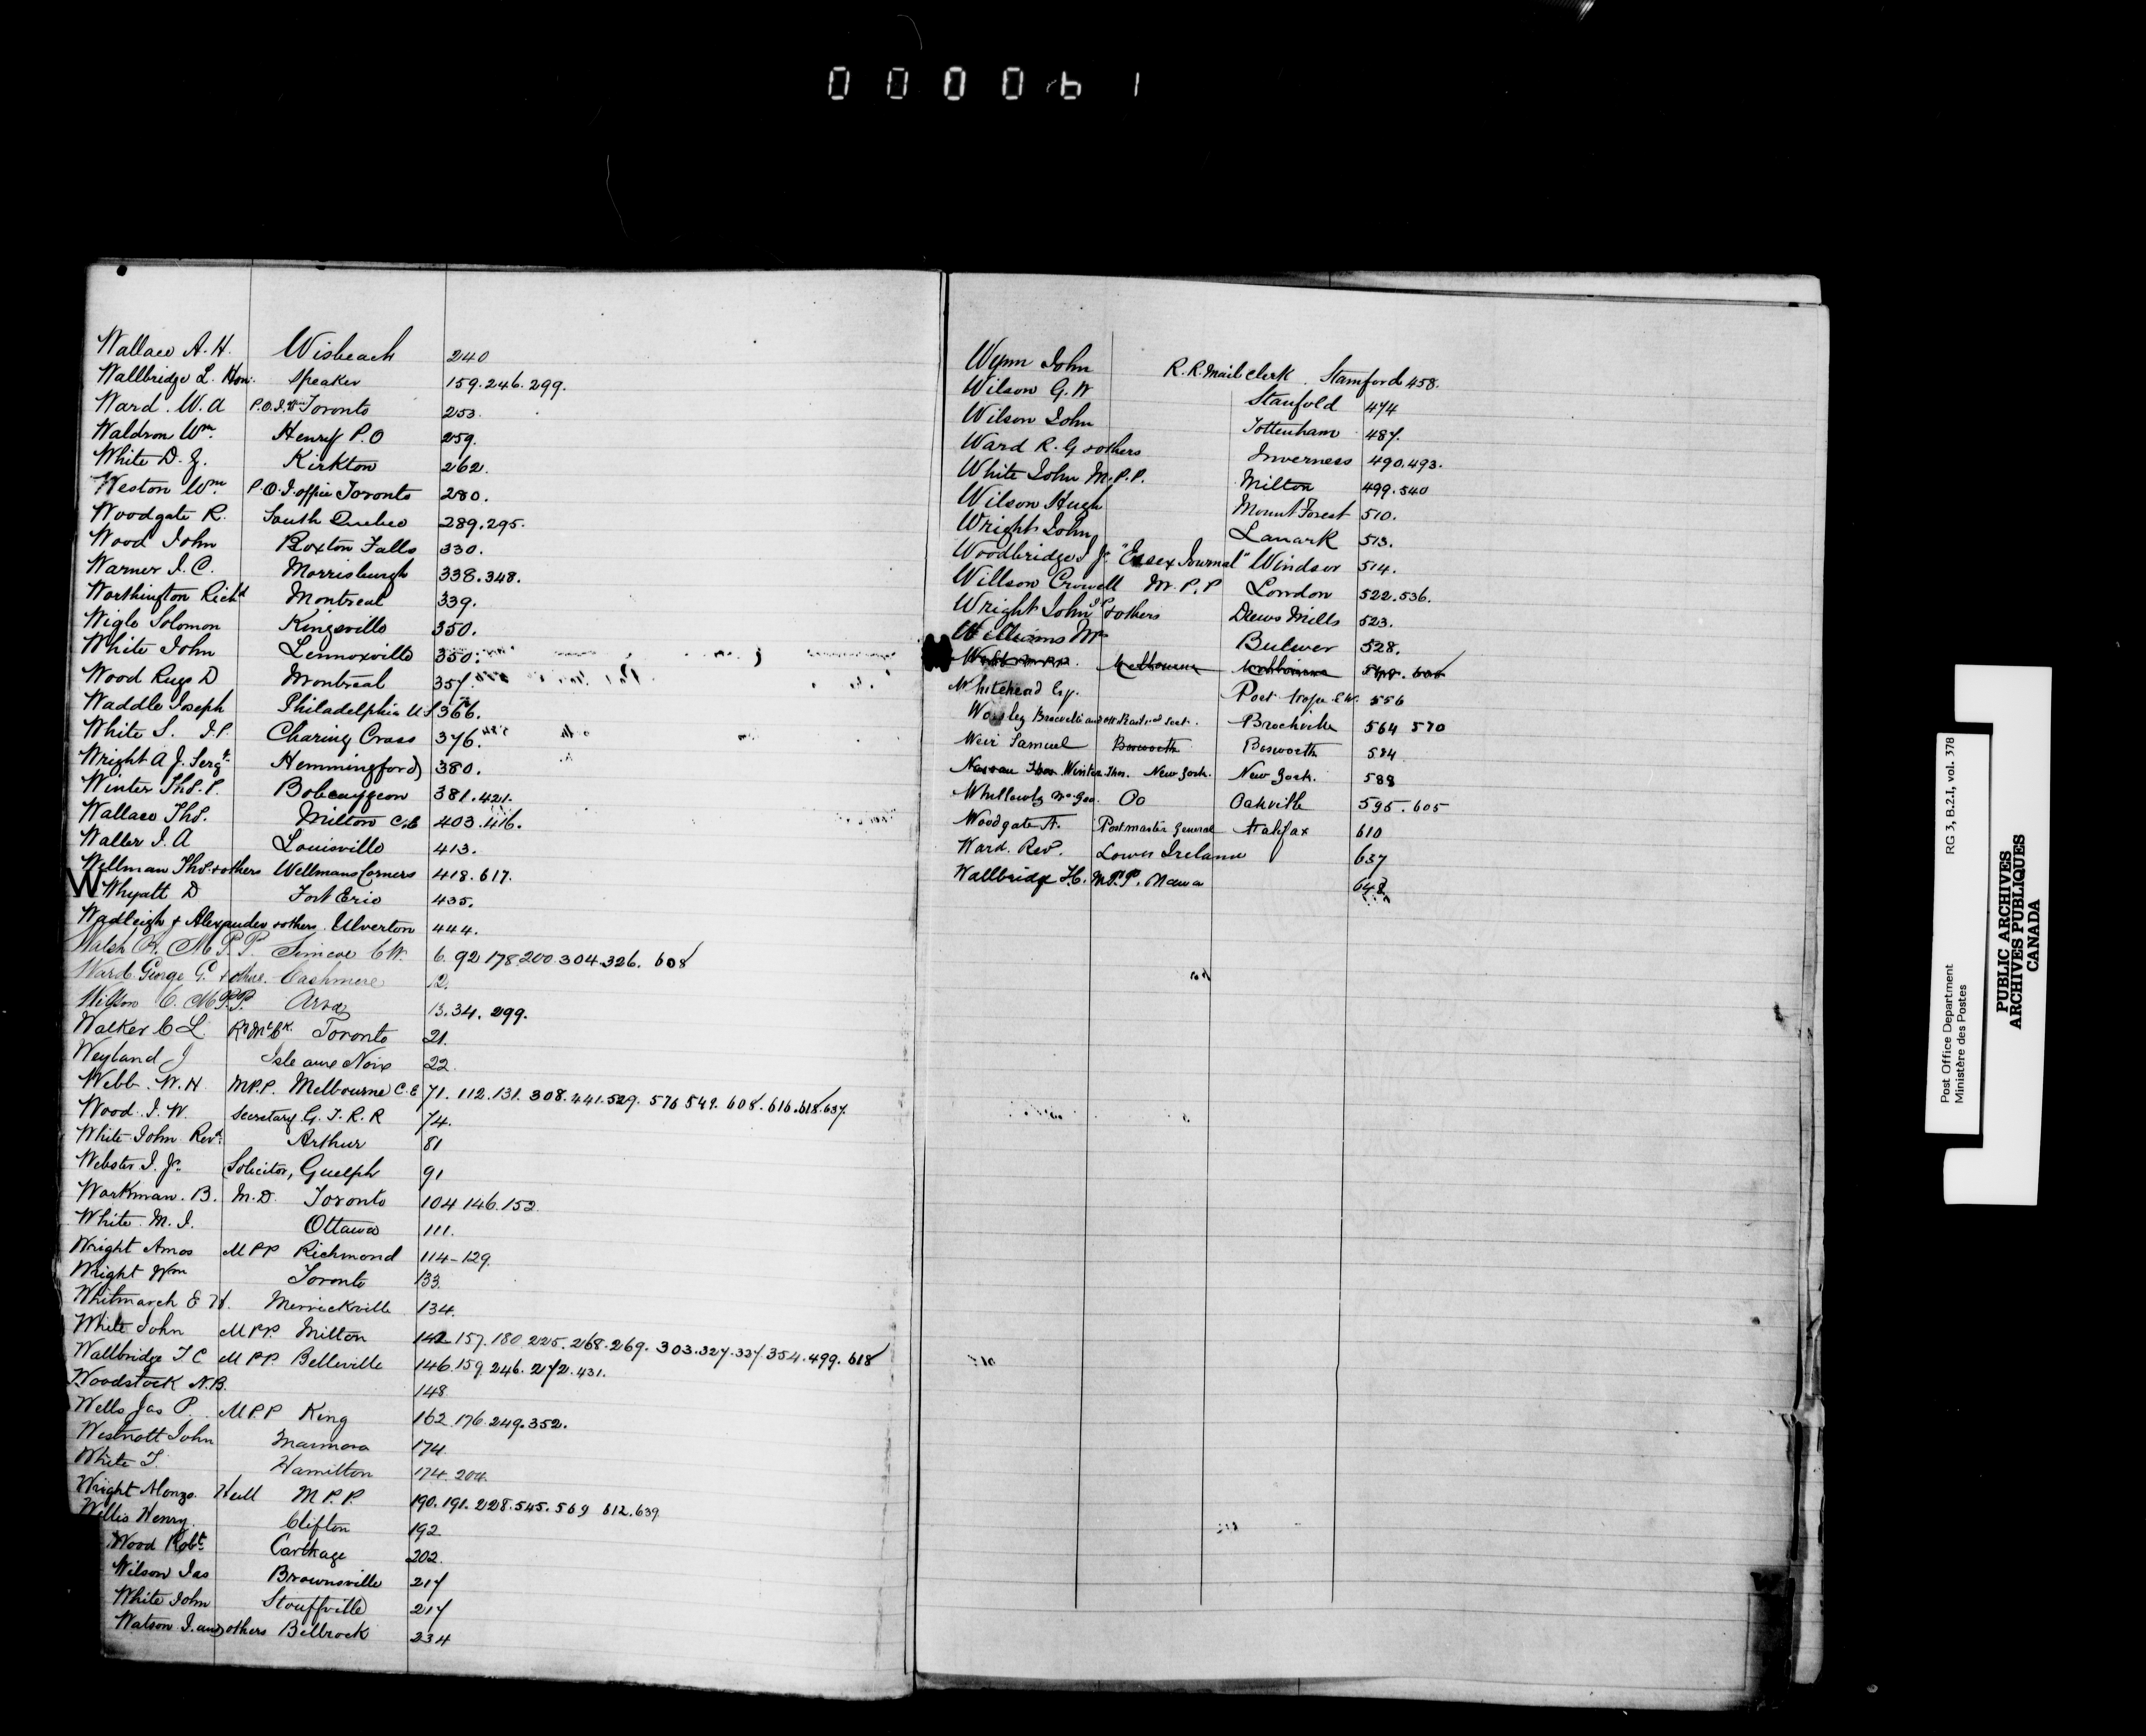 000061
Wallace A. H. Wisbeach 240
Wallbridge L. Hon. Speaker 159.246.299.
Ward. W. A P.O.I. Toronto 253.
Waldron Wm. Henry P.O 259.
White D. Kirkton 262.
Weston Wm. P.O.I. office Toronto 280.
Woodgate R. South Quebec 289.295.
Wood John Roxton Falls 330.
Warner I. C. Morrisburgh 338.348.
Worthington Richd Montreal 339.
Wigle Solomon Kingsville 350.
White John Lennoxville 350.
Wood Ruge D Montreal 357.
Waddle Joseph Philadelphia U.S 366.
White S. J.P. Charing Cross 376.
Wright A J. Sergt. Hemmingford 380.
Winter Thos. P. Bobcaygeon 381.421.
Wallace Thos. Milton 403.416.
Waller I. A Louisville 413.
Wellman Thos. & others Wellmans Corners 418.617.
W
Whyatt D Fort Erie 435.
Wadleigh & Alexander & others. Ulverton 444.
Walsh A. M.P.P. Simcoe C.W. 6. 92 178.200.304.326. 608
Ward George G. & others. Cashmere 12.
Wilson C. M.P.P. Arva 13.34. 299.
Walker C L Toronto 21.
Weyland J Isle aux Noix 22.
Webb. W. H. M.P.P. Melbourne C.E 71. 112.131. 308.441.529. 576 549. 608. 616.618.637.
Wood. I. W. Secretary G. T. R. R 74.
White John Revd. Arthur 81
Webster I. Jr. Solicitor, Guelph 91
Workman. B. M.D. Toronto 104 146.152.
White. M. I. Ottawa 111.
Wright Amos M P P Richmond 114-129.
Wright Wm Toronto 133.
Whitmarch E H. Merrickville 134.
White John M P.P. Milton 142.157.180.225.268.269. 303.327.337.354.499. 618
Wallbridge T C M P.P. Belleville 146.159.246.272.431.
Woodstock N.B. 148
Wells Jas P. M.P.P King 162.176.249.352.
Westnott John Marmora 174.
White T. Hamilton 174.204.
Wright Alonzo. Hull M.P.P. 190.191.228.545.569 612.639.
Willis Henry. Clifton 192
Wood Robt. Carthage 202.
Wilson Jas Brownsville 217
White John Stouffville 217
Watson I. and others Bellrock 234
Wynn John R. R. Mail Clerk. Stamford 458.
Wilson G. W Stanfold 474
Wilson John Tottenham 487.
Ward R. G & others Inverness 490.493.
White John M.P.P. Milton 499.540
Wilson Hugh Mount Forest 510.
Wright John Lanark 513.
Woodbridge I Jr. "Essex Journal" Windsor 514.
Willson Crowell M.P.P London 522.536.
Wright John J.P. & others Drews Mills 523.
Williams Mr Bulwer 528.
Melbourne Melbourne
Whitehead Esq. Port Hope C.W. 556
Worsley Brockville 564 570
Weir Samuel Bosworth Bosworth 584
Winter Thos. New York. New York. 588
Do Oakville 595.605
Woodgate A. Postmaster General Halifax 610
Ward. Revd. Lower Ireland 637
Wallbridge T.C. M.P.P. 648
Post Office Department RG 3, B.2.I, vol. 378
Ministère des Postes
PUBLIC ARCHIVES
ARCHIVES PUBLIQUES
CANADA